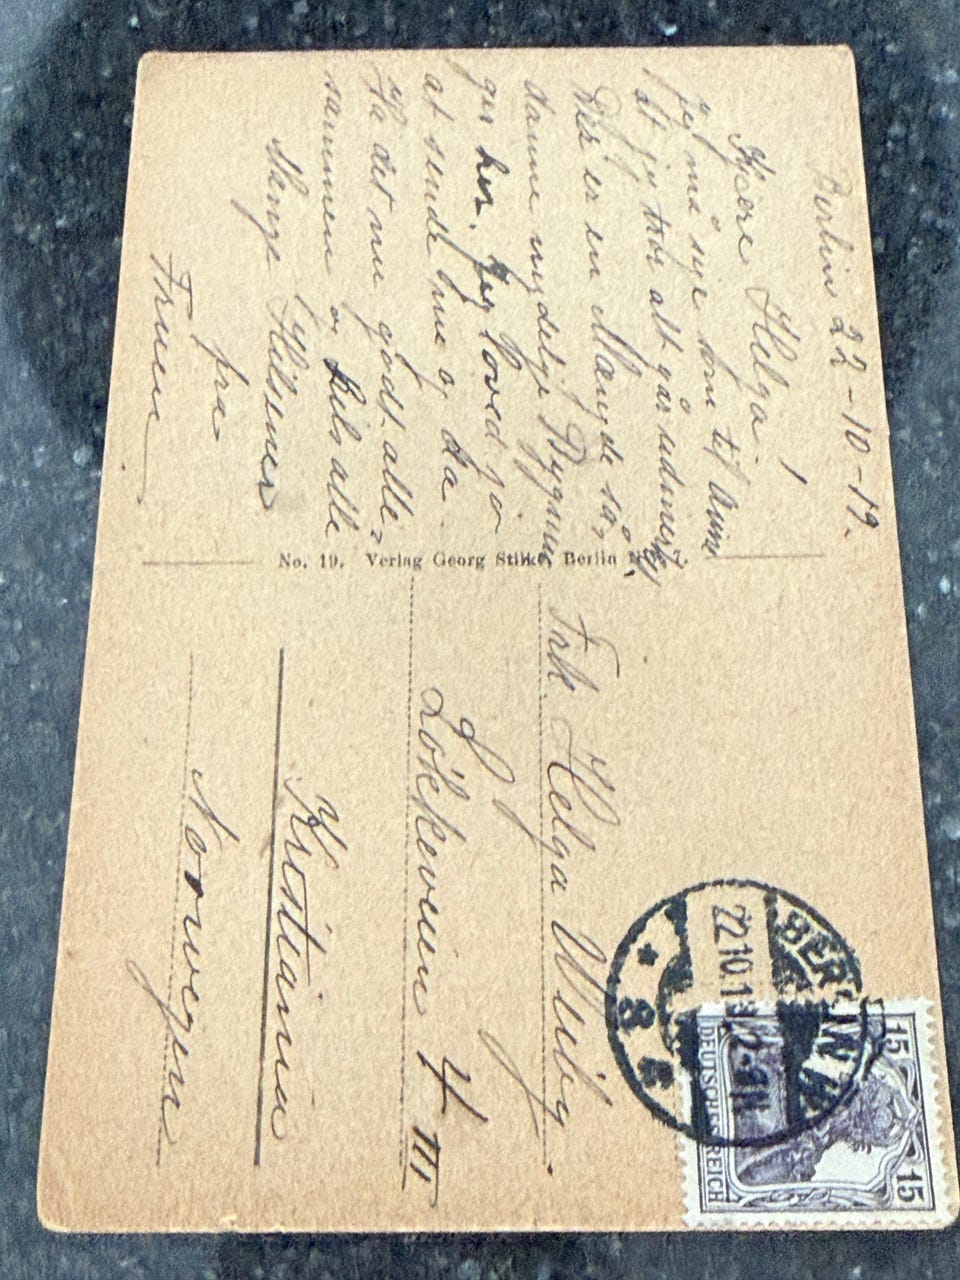 Berlin 22-10-19.
Kjære Helga!
Jeg må sige som til Amim
at jeg tror alt går udmerket,
Her er en Mængde så,
danne nydelige Bygnin
ger her. Jeg loved jo
at sende Frue og da.
Ha det nu godt alle,
sammen og hils alle
Mange Hilsener
fra
Fruen
No. 19. Verlag Georg Stilke, Berlin N.W. 7.
Frk. Helga Wieby.
Lökkeveien 4 III
Kristiania
Norwegen
BERLIN
22.10.19
8
DEUTSCHES REICH
15
15